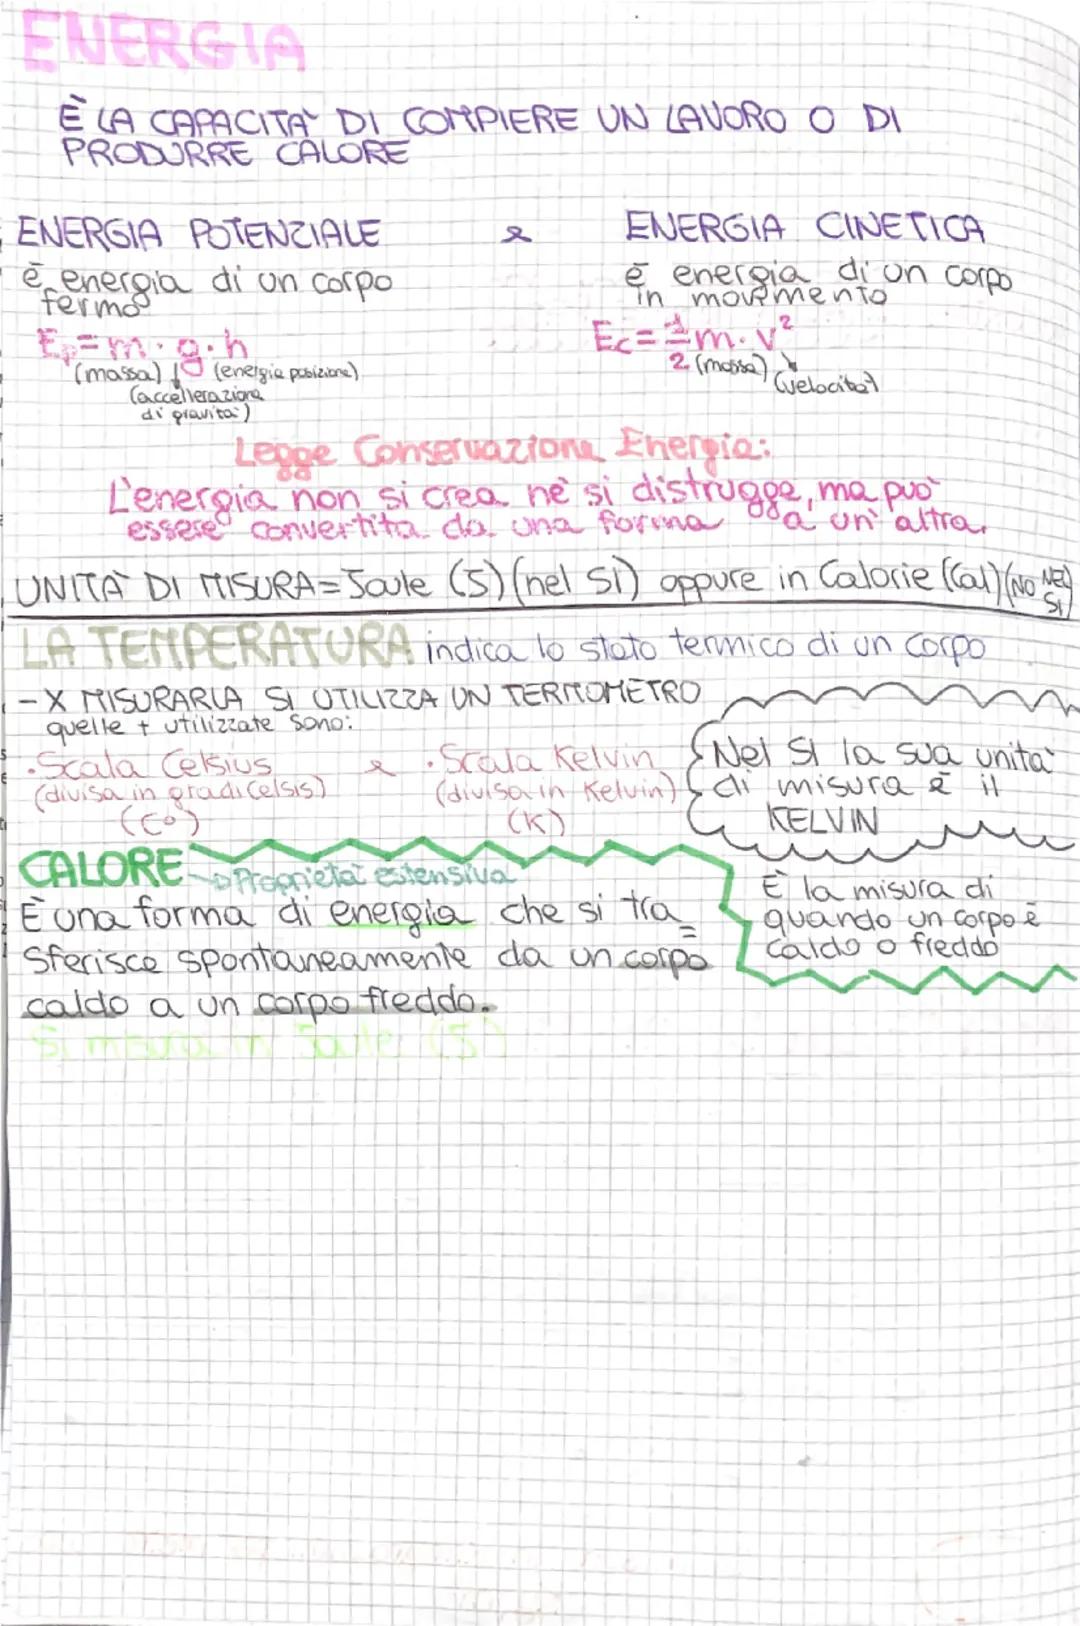 ENERGIA
È LA CAPACITÀ DI COMPIERE UN LAVORO O DI
PRODURRE CALORE
ENERGIA POTENZIALE e ENERGIA CINETICA
è energia di un corpo
fermo
è energia di un corpo
in movimento
Ep=m·g·h
(massa) ↓ (energia posizione)
(accellerazione
di gravità)
Ec=1/2 m·v²
(massa) (velocità)
Legge Conservazione Energia:
L'energia non si crea nè si distrugge, ma può
essere convertita da una forma a un'altra.
UNITÀ DI MISURA=Joule (J) (nel SI) oppure in Calorie (Cal) (NO NEL SI)
LA TEMPERATURA indica lo stato termico di un corpo
- X MISURARLA SI UTILIZZA UN TERMOMETRO
quelle + utilizzate sono:
·Scala Celsius e ·Scala Kelvin
(divisa in gradi Celsis) (divisa in Kelvin)
(C°) (K)
Nel SI la sua unità
di misura è il
KELVIN
È la misura di
quando un corpo è
caldo o freddo
CALORE → Proprietà estensiva
È una forma di energia che si tra=
sferisce spontaneamente da un corpo
caldo a un corpo freddo.
Si misura in Joule (J)